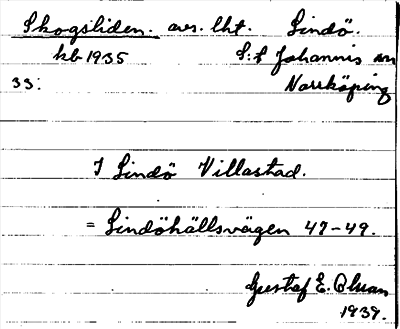 Skogsliden. avs. lht. Lindö.
kb 1935 S:t Johannis sn
33: Norrköping
I Lindö Villastad.
= Lindöhällsvägen 47-49.
Gustaf E. Ohman
1939.